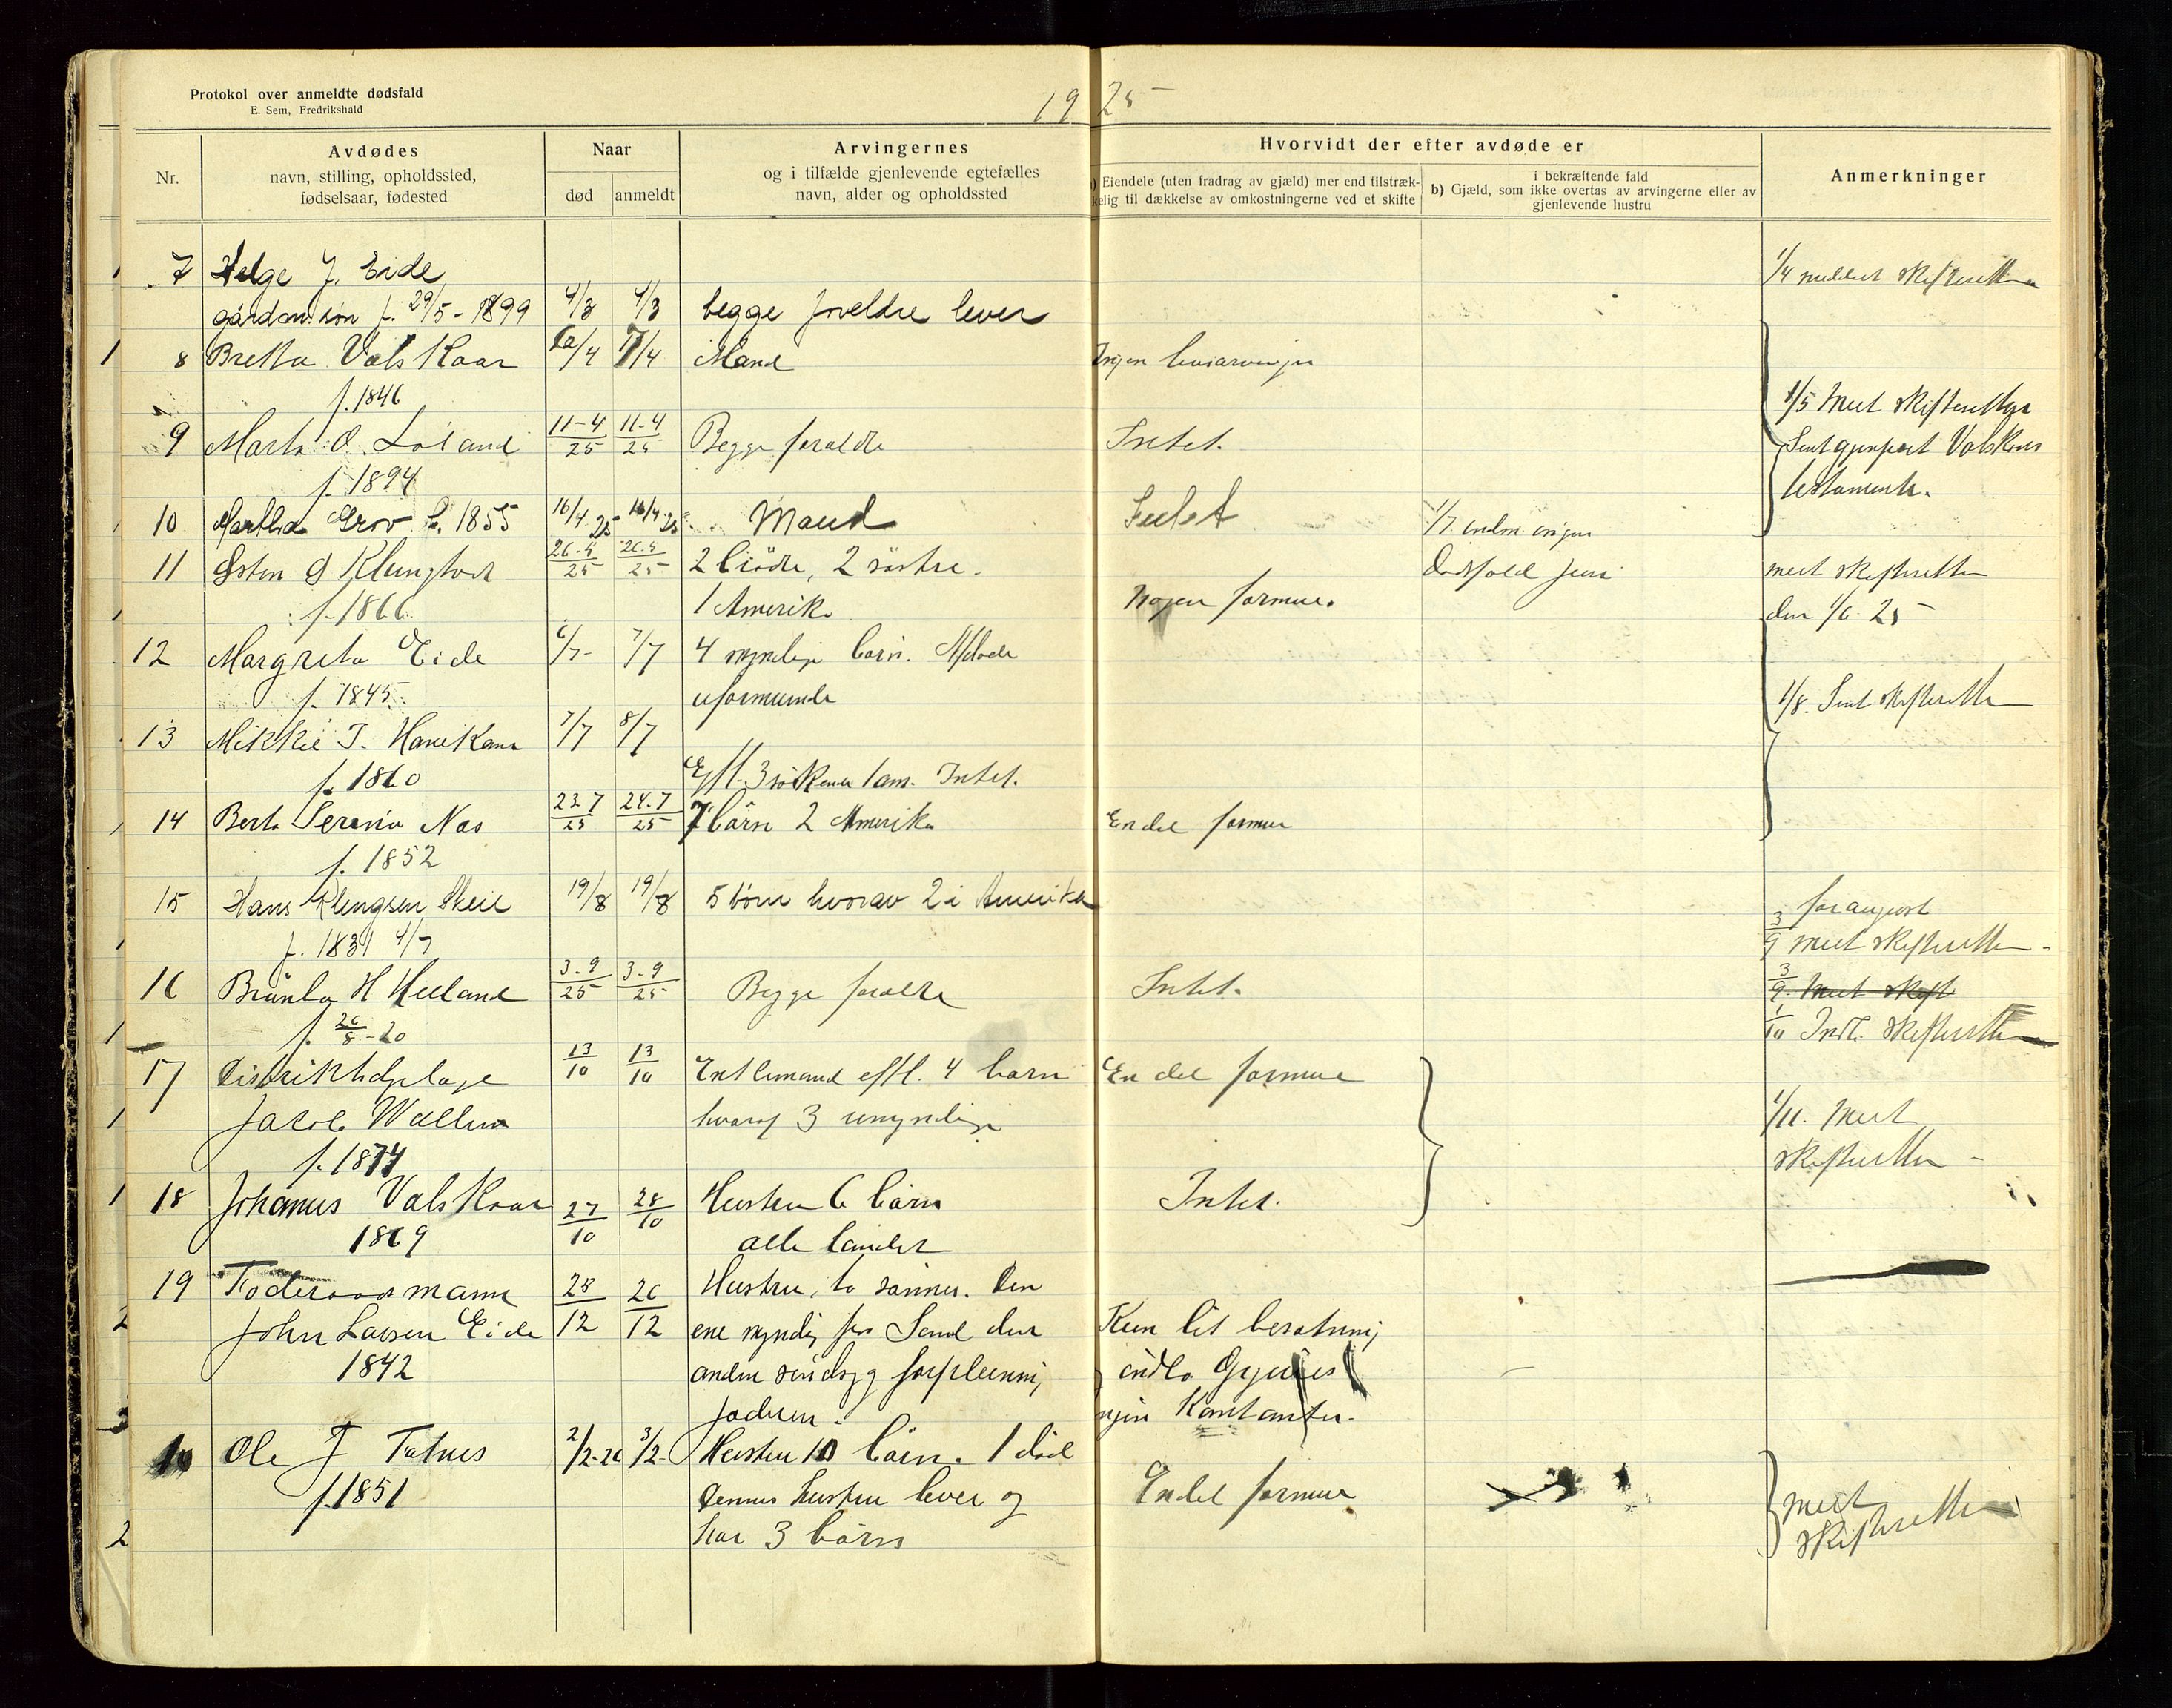 Protokol over anmeldte dødsfald
E. Sem, Fredrikshald
1925
Nr.
Avdødes
navn, stilling, opholdssted,
fødselsaar, fødested
Naar
død
anmeldt
Arvingernes
og i tilfælde gjenlevende egtefælles
navn, alder og opholdssted
Hvorvidt der efter avdøde er
Eiendele (uten fradrag av gjæld) mer end tilstræk-
kelig til dækkelse av omkostningerne ved et skifte
i bekræftende fald
b) Gjæld, som ikke overtas av arvingerne eller av
gjenlevende hustru
Anmerkninger
7 Helge J. Eide 1/4 meldt skifteretten
gårdm. søn f. 29/5 - 1899 4/3 4/3 begge foreldre lever
8 Bretta Valskaar /4 7/4 Mand Ingen livsarvinger
f. 1846
1/5 Melt skifteretten
9 Marta O. Løland 11-4/25 11-4/25 Begge foreldre Intet.
Sent Valskaars
f. 1894 testamente.
10 Martha Grov f. 1855 16/4 25 16/4 25 Mand Intet 1/7 indm. ingen
11 Østen G 26-5/25 26-5/25 2 brödre, 2 söstre. dødsfald juni melt skifteretten
f. 1866 1 Amerika Nogen formue. den 1/6 25
12 Margreta Eide 6/7 7/7 4 myndige börn. Afdøde
f. 1845 uformuende 1/8. Sent skifteretten
13 Mikkel T. 7/7 8/7
f. 1860 Eftl. 3 søskende 1 am. Intet.
14 Berta Serina Nas 23-7/25 24-7/25 7 börn 2 Amerika En del formue
f. 1852
15 Hans Klengsen Skeie 19/8 19/8 5 börn hvorav 2 i Amerika
f. 1831 4/7 3/9 melt skifteretten
16 H Heeland 3-9/25 3-9/25 Begge foreldre Intet. 3/9 Melt skift
f. 26/8 - 20 1/10 Indb. skifteretten
17 Distriktslæge 13/10 13/10 Enkemand eftl. 4 barn En del formue
Jacob Wallem hvoraf 3 umyndige 1/11. Melt
f. 1874 skifteretten
18 Johannes Valskaar 27/10 28/10 Hustru 6 börn Intet.
1869 alle landet
19 Föderaadsmann 25/12 26/12 Hustru, to sønner. Den
John Larsen Eide ene myndig Sand den Kun lit besætning
1842 anden sindsyg forpleining indbo
faderen. ingen Kontanter.
Ole J Tatnes 2/2-26 3/2- Hustru 10 börn. 1 død
f. 1851 dennes hustru lever og En del formue melt
har 3 börn skifteretten